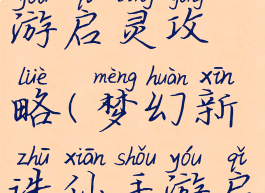 游启灵攻
lüè mèng huàn xīn
略(梦幻新
zhū xiān shǒu yóu qǐ
诛仙手游启